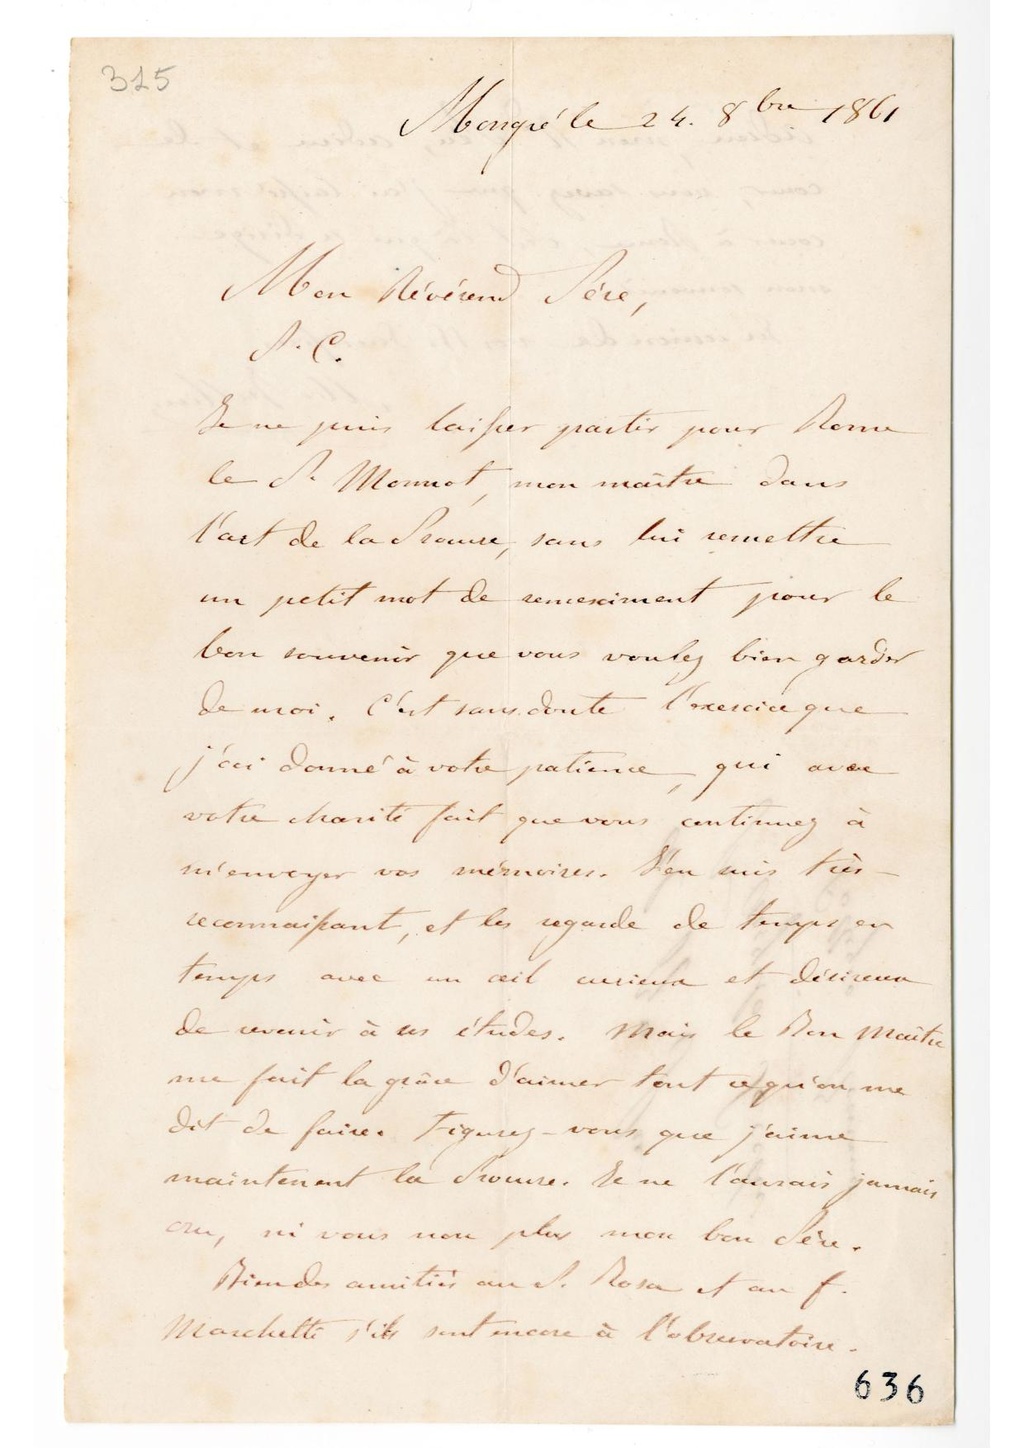 315
Mongré le 24. 8bre 1861
Mon Révérend Père,
P. C.
Je ne puis laisser partir pour Rome
le P. Monnot, mon maître dans
l'art de la Procure, sans lui remettre
un petit mot de remerciment pour le
bon souvenir que vous voulez bien garder
de moi. C'est sans doute l'exercice que
j'ai donné à votre patience, qui avec
votre charité fait que vous continuez à
m'envoyer vos mémoires. J'en suis très
reconnaissant, et les regarde de temps en
temps avec un œil curieux et désireux
de revenir à ces études. Mais le Bon Maître
me fait la grâce d'aimer tout ce qu'on me
dit de faire. Figurez-vous que j'aime
maintenant la Procure. Je ne l'aurais jamais
cru, ni vous non plus mon bon Père.
Bien des amitiés au P. Rosa et au f.
Marchetti s'ils sont encore à l'observatoire.
636